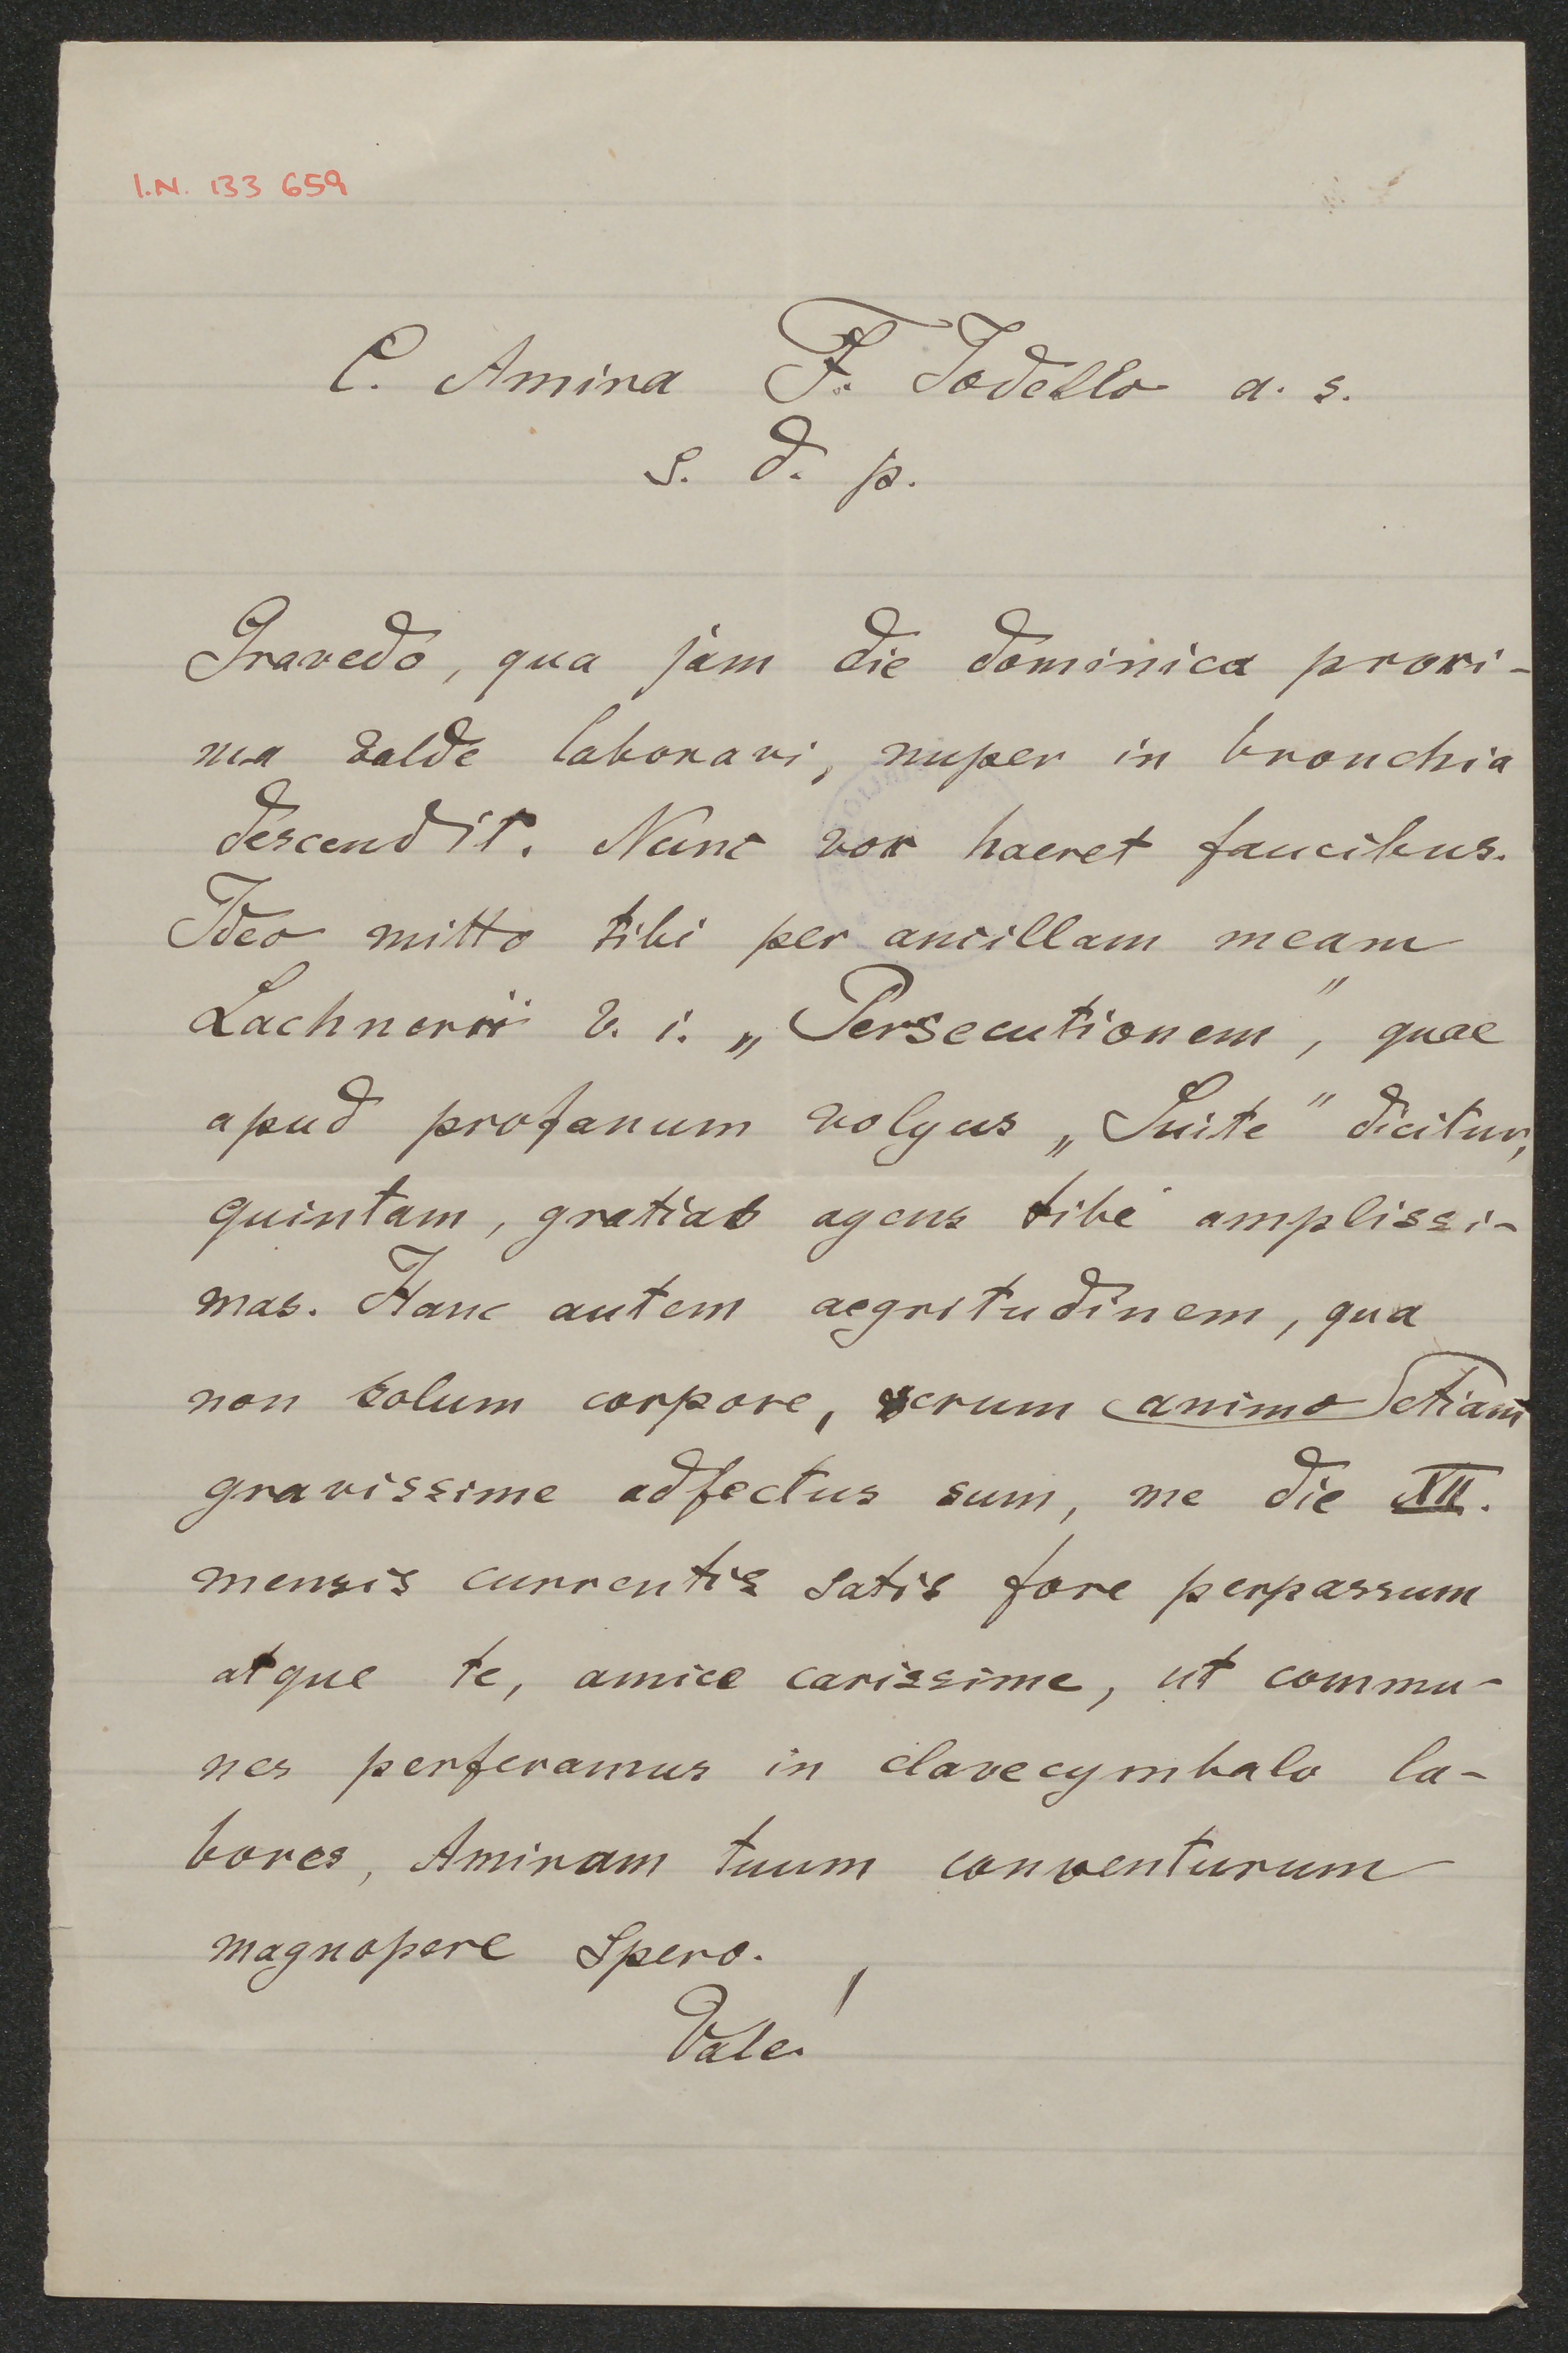 I.N. 133 659
C. Amira F. Jodello a. s.
s. d. p.
Gravedo, qua jam die dominica proxi-
ma valde laboravi, nuper in bronchia
descendit. Nunc vox haeret faucibus.
Ideo mitto tibi per ancillam meam
Lachnerii v. i. „Persecutionem", quae
apud profanum volgus „Suite" dicitur,
quintam, gratias agens tibi amplissi-
mas. Hanc autem aegritudinem, qua
non solum corpore, verum animo etiam
gravissime adfectus sum, me die XII.
mensis currentis satis fore perpassum
atque te, amice carissime, ut commu-
nes perferamus in clavecymbalo la-
bores, Amiram tuum conventurum
magnopere spero.
Vale!